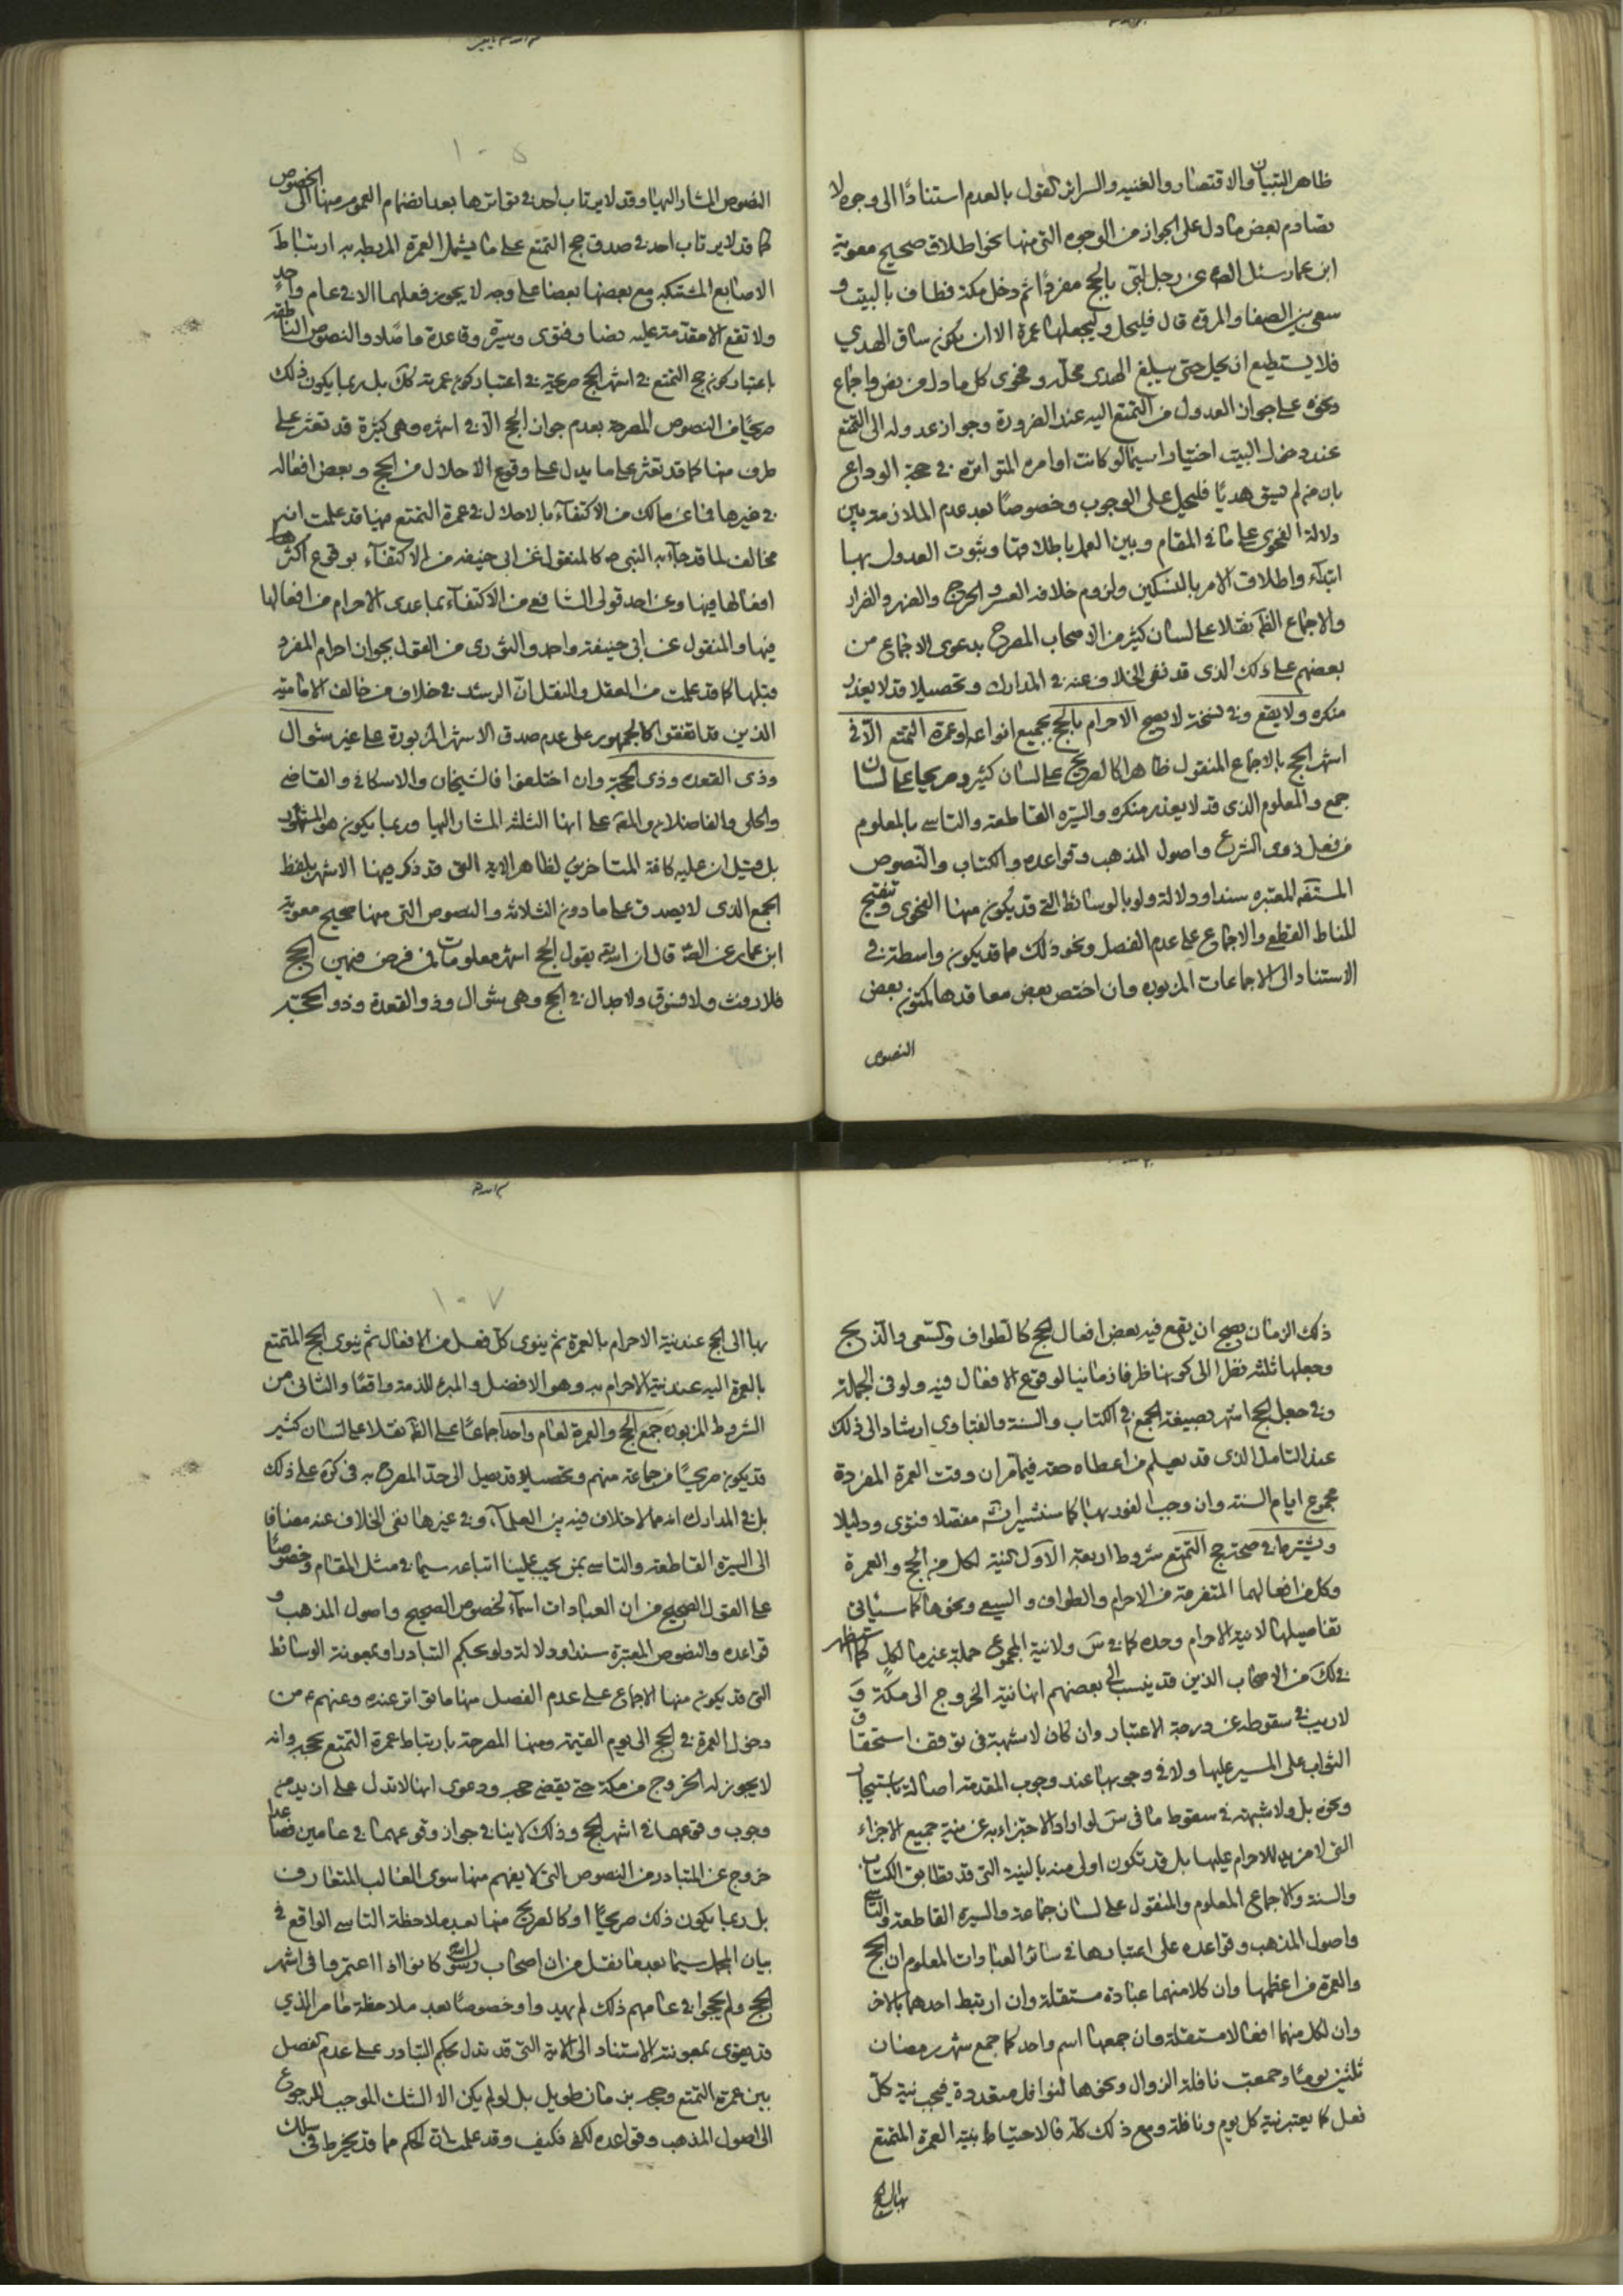 ظاهر التبيان والاقتصار والغنيه والسرائر القول بالعدم استنادًا الى وجوه لا
تصادم بعض ما دل على الجواز من الوجوه التي منها نحو اطلاق صحيح معوية
ابن عمار سئل الصم عن رجل لبى بالحج مفردًا ثم دخل مكة فطاف بالبيت و
سعى بين الصفا والمروه قال فليحل وليجعلها عمرة الا ان يكون ساق الهدي
فلا يستطيع ان يحل حتى يبلغ الهدى محله وفحوى كل ما دل من نص واجماع
ونحوه على جواز العدول من التمتع اليه عند الضرورة وجواز عدوله الى التمتع
عند دخول البيت اختيارا سيما لو كانت اوامره المتواترة في حجة الوداع
بان من لم يسق هديًا فليحل على الوجوب وخصوصًا بعد عدم الملازمة بين
دلالة الفحوى على ما في المقام وبين العمل باطلاقها وبثوت العدول بها
ابتداء واطلاق الامر بالنسكين ولزوم خلافه العسر والحرج والضرر والضرار
والاجماع الظم نقلا على لسان كثير من الاصحاب المصرح بدعوى الاجماع من
بعضهم على ذلك الذى قد نفى الخلاف عنه في المدارك وتحصيلا قد لا يعذر
منكره ولا يقع وفي نسخة لا يصح الاحرام بالحج بجميع انواعه او عمرة التمتع الا في
اشهر الحج بالاجماع المنقول ظاهرا كالصريح على لسان كثير وصريحا على لسان
جمع والمعلوم الذى قد لا يعذر منكره والسيرة القاطعة والتاسي بالمعلوم
من فعل ذوى الشرع واصول المذهب وقواعده والكتاب والنصوص
المستفه المعتبره سندا ودلالة ولو بالوسائط التي قد يكون منها الفحوى وتنقيح
المناط القطعي والاجماع على عدم الفصل ونحو ذلك مما قد يكون واسطة في
الاستناد الى الاجماعات المزبوره وان اختص بعض معاقدها كمتون بعض
النصوص
١٠٥
النصوص المشار اليها وقد لا يرتاب احد في تواترها بعد انضمام العموم منها الى الخصوص
كما قد لا يرتاب احد في صدق حج التمتع على ما يشمل العمرة المربطه به ارتباط
الاصابع المشتبكه مع بعضها بعضا على وجه لا يجوز فعلهما الا في عام واحد
ولا تقع الا مقدمة عليه نصا وفتوى وسيرة وقاعدة ما صاد والنصوص الناطقه
باعتبار كون حج التمتع في اشهر الحج صريحة في اعتبار كون عمرته كك بل ربما يكون ذلك
صريحًا من النصوص المصرحة بعدم جواز الحج الا في اشهره وهي كثيرة قد تعثر على
طرف منها كما قد تعثر على ما يدل على وقوع الاحلال من الحج وبعض افعاله
في غيرها فما عن مالك من الاكتفاء بالاحلال في عمرة التمتع فيها قد علمت انه
مخالف لما قد جاء به النبي ص كالمنقول عن ابي حنيفه من الاكتفاء بوقوع اكثر
افعالها فيها وعن احد قولي الشافعي من الاكتفاء بما عدى الاحرام من افعالها
فيها والمنقول عن ابي حنيفة واحمد والثوري من القول بجواز احرام المفرد
قبلها كما قد علمت من العقل والنقل ان الرشد في خلاف من خالف الامامية
الذين قد اتفقوا كالجمهور على عدم صدق الاشهر المزبورة على غير شوال
وذى القعده وذى الحجة وان اختلفوا فالشيخان والاسكافي والقاضي
والحلى والفاضلان والمقه على انها الثلثة المشار اليها وربما يكون هو المشهور
بل قيل ان عليه كافة المتاخرين لظاهر الاية التي قد ذكر فيها الاشهر بلفظ
الجمع الذى لا يصدق على ما دون الثلاثه والنصوص التي منها صحيح معوية
ابن عمار عن الصم قال ان الله يقول الحج اشهر معلومات فمن فرض فيهن الحج
فلا رفث ولا فسوق ولا جدال في الحج وهى شوال وذو القعدة وذو الحجة
ذلك الزمان يصح ان يقع فيه بعض افعال الحج كالطواف والسعى والذبح
وجعلها ثلثه نظرا الى كونها ظرفا زمانيا لوقوع الافعال فيه ولو في الجملة
وفي جعل الحج اشهر بصيغة الجمع في الكتاب والسنة والفتاوى ارشاد الى ذلك
عند التامل الذى قد يعلم من اعطاه حقه فيما مر ان وقت العمرة المفردة
مجموع ايام السنه وان وجب الفور بها كما سنشير انش مفصلا فتوى ودليلا
ويشترط في صحة حج التمتع شروط اربعة الاول النية لكل من الحج والعمرة
وكل من افعالهما المتفرقة من الاحرام والطواف والسعي ونحوها كما سيأتي
تفاصيلها لا نية الاحرام وحده كما في س ولا نية المجموع جملة غير ما لكل كما استظهر
في لك من الاصحاب الذين قد ينسب الى بعضهم انها نية الخروج الى مكة و
لا ريب في سقوطه عن درجة الاعتبار وان كان لا شبهة في توقف استحقاق
الثواب على المسير عليها ولا في وجوبها عند وجوب المقدمة اصالة باستيجار
ونحوه بل ولا شبهة في سقوط ما في س لو اراد الاجتزاء به عن نية جميع الاجزاء
التي لا مزيد للاحرام عليها بل قد تكون اولى منه بالنية التي قد تطابق الكتاب
والسنة والاجماع المعلوم والمنقول على لسان جماعة والسيره القاطعة والتاسي
واصول المذهب وقواعده على اعتبارها في سائر العبادات المعلوم ان الحج
والعمرة من اعظمها وان كلا منهما عبادة مستقلة وان ارتبط احدهما بالاخر
وان لكل منهما افعالا مستقلة وان جمعها اسم واحد كما جمع شهر رمضان
ثلثين يومًا وجمعت نافلة الزوال ونحوها لنوافل متعددة فيجب نية كل
فعل كما يعتبر نية كل يوم ونافلة ومع ذلك كله فالاحتياط بنية العمرة المتمتع
بها الى الحج
١٠٧
بها الى الحج عند نية الاحرام بالعمرة ثم ينوى كل فعل من الافعال ثم ينوى الحج المتمتع
بالعمرة اليه عند نية الاحرام به وهو الافضل والمبرء للذمة واقعًا والثاني من
الشروط المزبوره جمع الحج والعمرة لعام واحد اجماعًا على الظم نقلا على لسان كثير
قد يكون صريحًا من جماعة منهم وتحصيلا قد يصل الى حد المصرح به في كثرة على ذلك
بل في المدارك انه مما لا خلاف فيه بين العلماء وفي غيرها نفى الخلاف عنه مضافا
الى السيرة القاطعة والتاسي بمن يجب علينا اتباعه سيما في مثل المقام وخصوصًا
على القول الصحيح من ان العبادات اسماء لخصوص الصحيح واصول المذهب و
قواعده والنصوص المعتبرة سندا ودلالة ولو بحكم التبادر او بمعونة الوسائط
التي قد يكون منها الاجماع على عدم الفصل منها ما تواتر عنده وعنهم ع من
دخول العمرة في الحج الى يوم القيمة ومنها المصرحة بارتباط عمرة التمتع بحجه وانه
لا يجوز له الخروج من مكة حتى يقضى حجه ودعوى انها لا تدل على ازيد من
وجوب وقوعهما في اشهر الحج وذلك لا ينافي جواز وقوعهما في عامين فصاعدا
خروج عن المتبادر من النصوص التي لا يفهم منها سوى الغالب المتعارف
بل ربما يكون ذلك صريحًا او كالصريح منها بعد ملاحظة التاسي الواقع في
بيان المجمل سيما بعد ما نقل من ان اصحاب رسول الله كانوا اذا اعتمروا في اشهر
الحج ولم يحجوا في عامهم ذلك لم يهدوا وخصوصًا بعد ملاحظة ما مر الذي
قد يقوى بمعونة الاستناد الى الاية التي قد تدل بحكم التبادر على عدم الفصل
بين عمرة التمتع وحجه بزمان طويل بل لو لم يكن الا الشك الموجب للرجوع
الى اصول المذهب وقواعده لكفى فكيف وقد علمت ان الحكم مما قد ينخرط في سلك